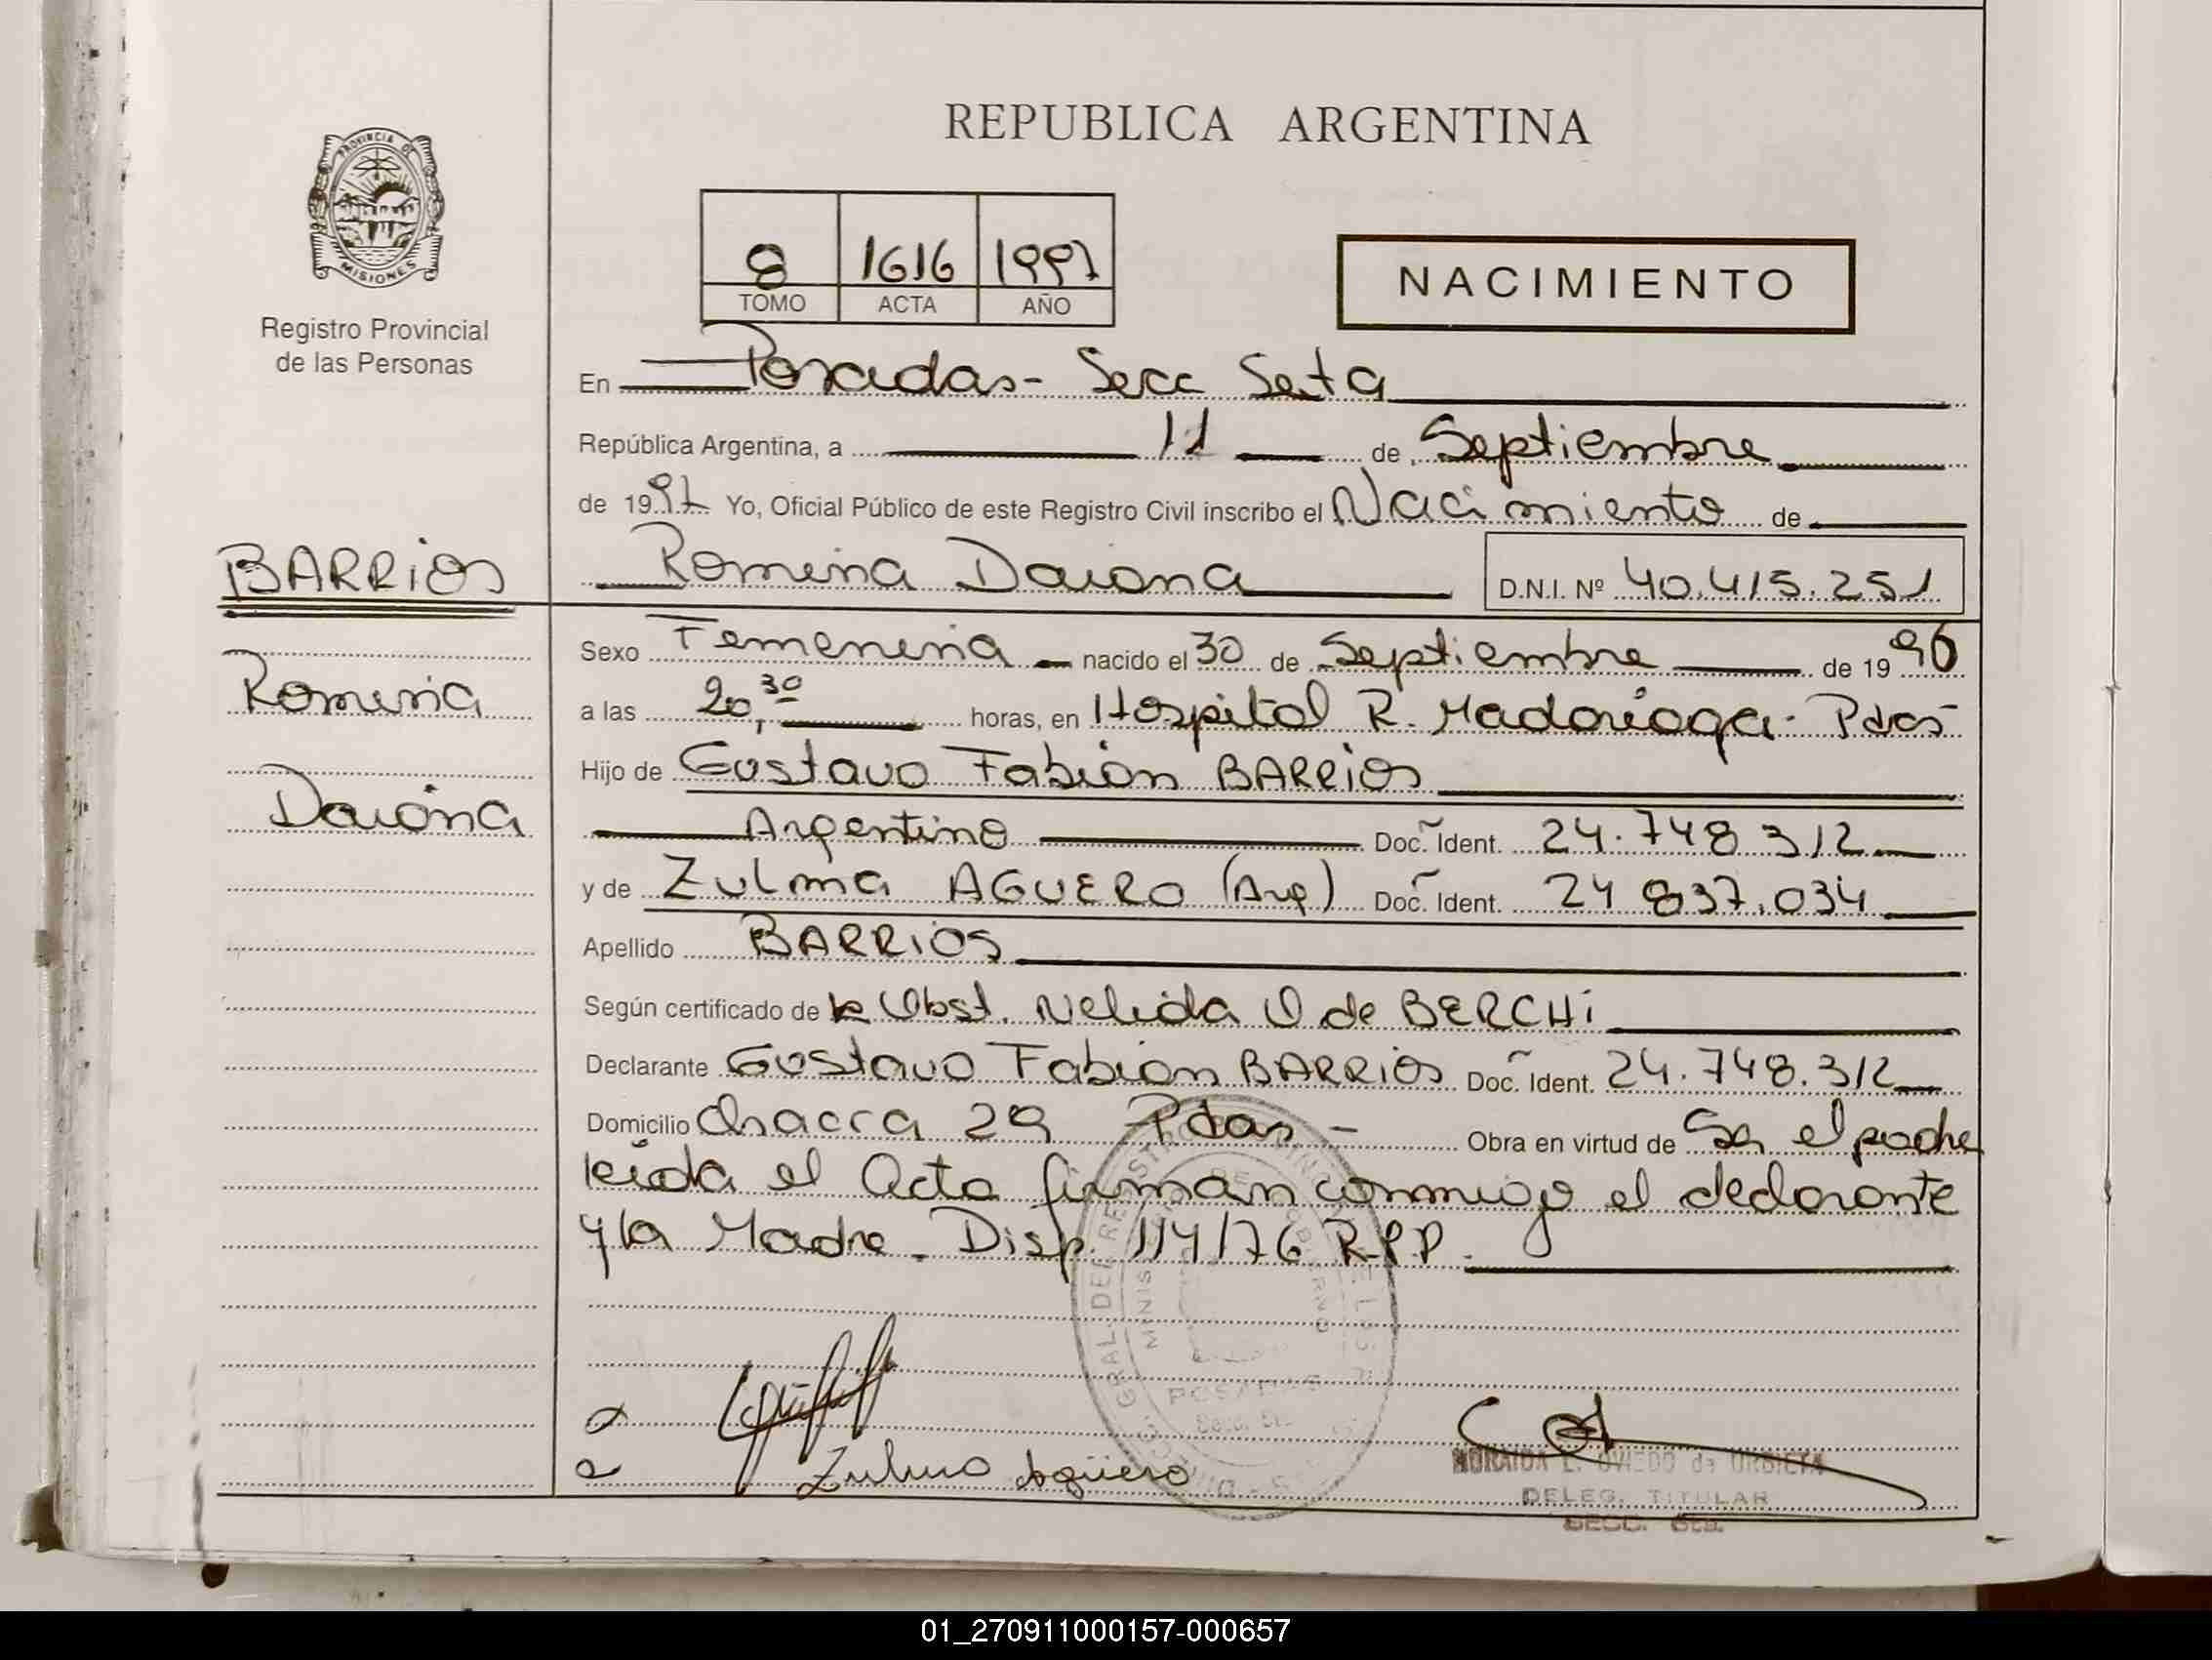 REPUBLICA ARGENTINA
PROVINCIA DE
MISIONES
Registro Provincial
de las Personas
8 1616 1997
TOMO ACTA AÑO
NACIMIENTO
En Posadas - Secc Sexta
República Argentina, a 11 de Septiembre
de 1997 Yo, Oficial Público de este Registro Civil inscribo el Nacimiento de
BARRIOS
Romina Daiana D.N.I. Nº 40.415.251
Romina
Daiana
Sexo Femenina nacido el 30 de Septiembre de 1996
a las 20,30 horas, en Hospital R. Madariaga - Pdas
Hijo de Gustavo Fabian BARRIOS
Argentino Doc. Ident. 24.748 312
y de Zulma AGUERO (Arg) Doc. Ident. 24 837.034
Apellido BARRIOS
Según certificado de la Obst. Nelida O de BERCHI
Declarante Gustavo Fabian BARRIOS Doc. Ident. 24.748.312
Domicilio Chacra 29 Pdas - Obra en virtud de Ser el padre
leida el Acta firman conmigo el declarante
y la Madre. Disp. 114/76 R.P.P.
POSADAS
Zulma Agüero
NORAIDA E. OVIEDO de URBIETA
DELEG. TITULAR
SECC. 6ta.
01_270911000157-000657